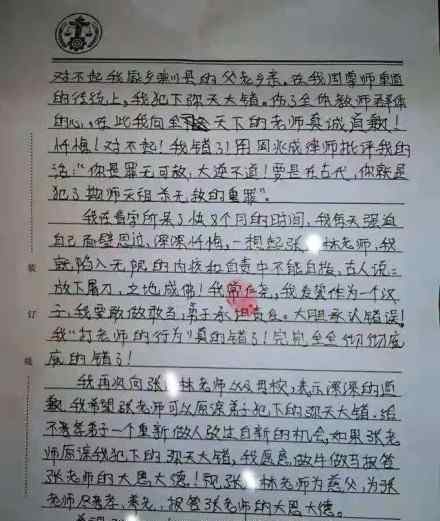 对不起我家乡栾川县的父老乡亲。在我国尊师重道
的传统上,我犯下弥天大错。伤了全体教师群体
的心。在此我向全天下的老师真诚道歉!
忏悔!对不起!我错了!用周兆成律师批评我的
话:"你是罪无可赦,大逆不道!要是在古代,你就是
犯了欺师灭祖杀无赦的重罪"。
我在看守所呆了快8个月的时间,我每天强迫
自己面壁思过,深深忏悔,一想起张 林老师,我
就陷入无限的内疚和自责中不能自拔,古人说:
放下屠刀,立地成佛!我常仁尧,我发誓作为一个汉
子,我要敢做敢当,勇于承担责任。大胆承认错误!
我"打老师的行为"真的错了!完完全全彻彻底
底的错了!
我再次向张 林老师以及母校,表示深深的道
歉,我希望张老师可以原谅弟子犯下的弥天大错,给
不孝弟子一个重新做人改过自新的机会,如果张老
师原谅我犯下的弥天大错,我愿意做牛做马报答
张老师的大恩大德!视张 林老师为慈父,为张
老师尽孝、养老,报答张老师的大恩大德。
装
订
线